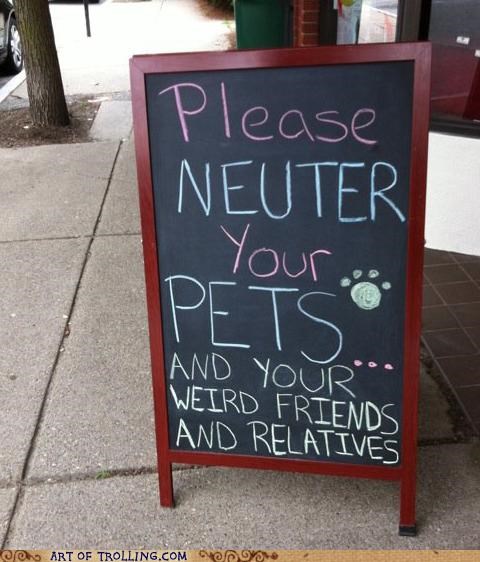 Please
NEUTER
Your
PETS...
AND YOUR
WEIRD FRIENDS
AND RELATIVES
ART OF TROLLING.COM